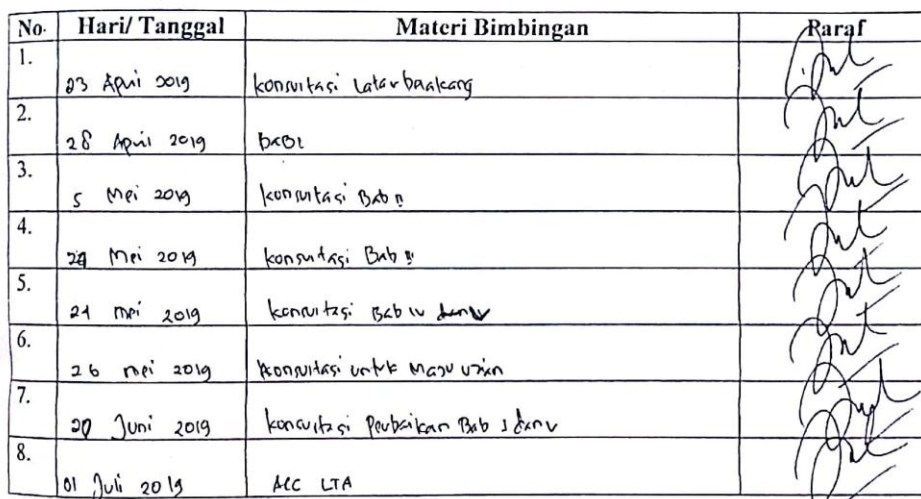 No. Hari/ Tanggal Materi Bimbingan Paraf
1.
23 April 2019 konsultasi Latar belakang
2.
28 April 2019 BAB I
3.
5 Mei 2019 konsultasi Bab II
4.
Mei 2019 konsultasi Bab III
5.
21 mei 2019 konsultasi Bab IV dan V
6.
26 mei 2019 konsultasi untuk Maju ujian
7.
20 Juni 2019 konsultasi Perbaikan Bab dan V
8.
01 Juli 2019 ACC LTA